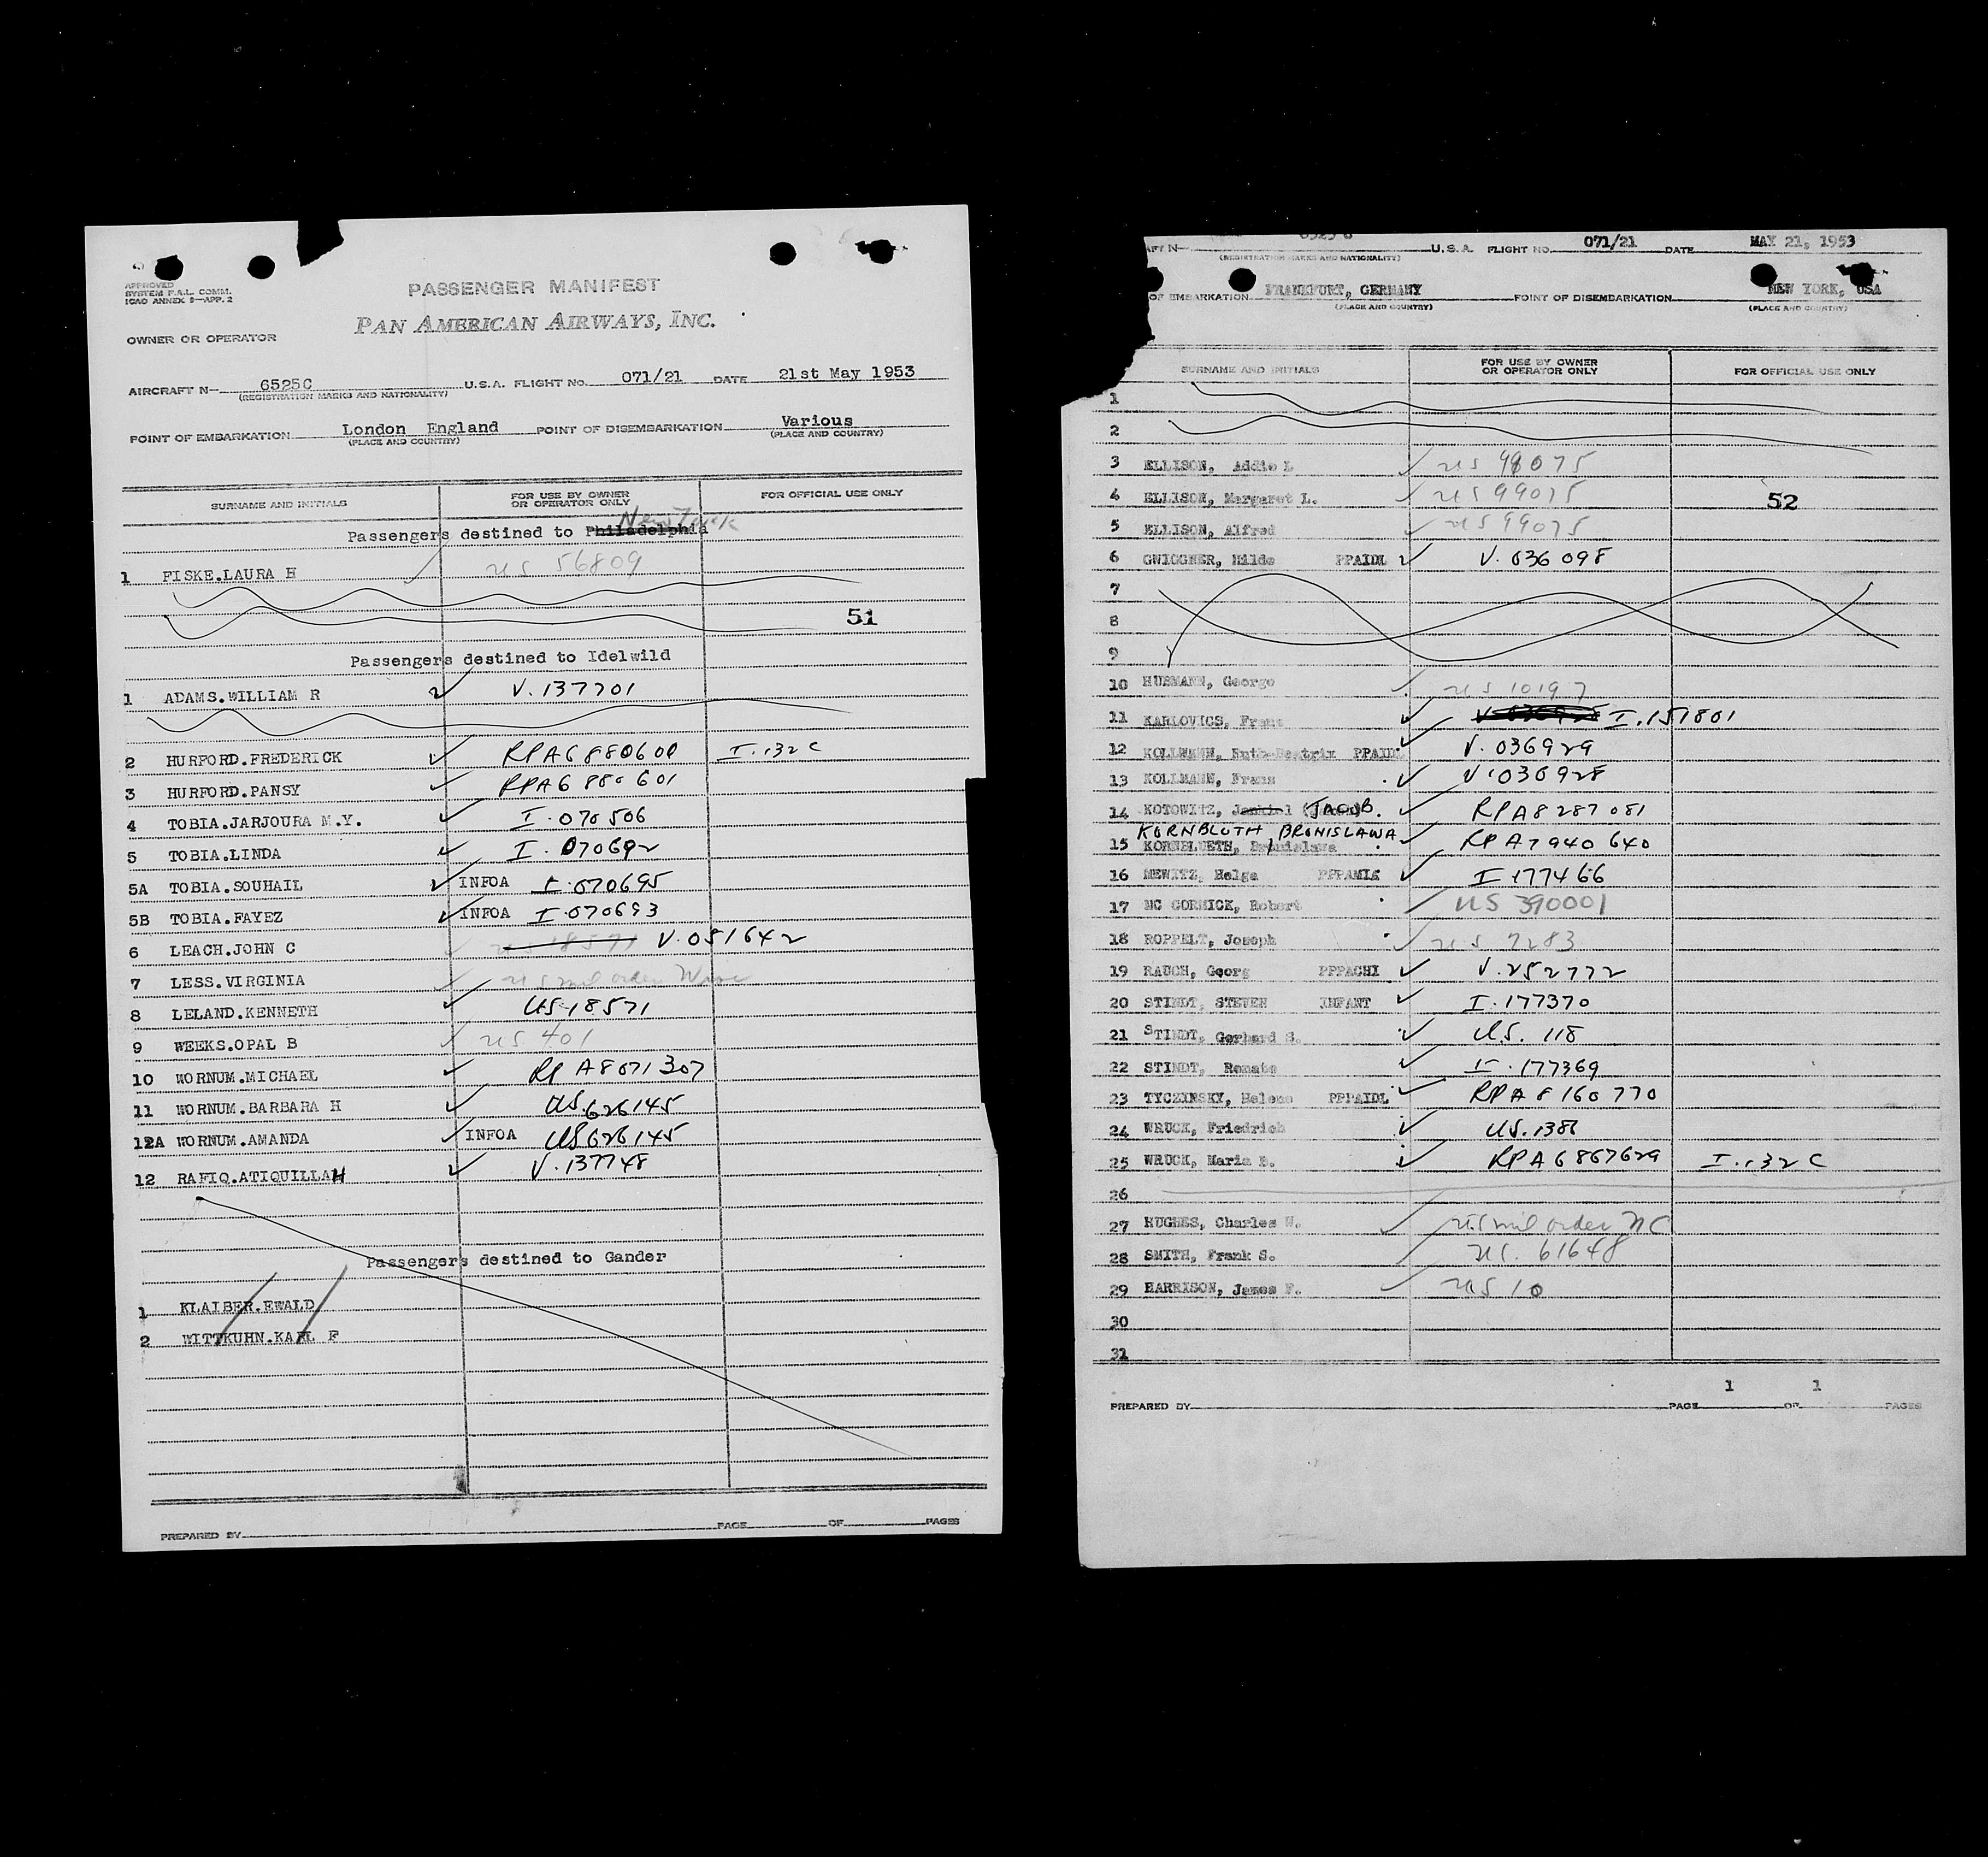 APPROVED
SYSTEM F.A.L. COMM.
ICAO ANNEX 9—APP. 2
PASSENGER MANIFEST
PAN AMERICAN AIRWAYS, INC.
OWNER OR OPERATOR
AIRCRAFT N— 6525C U.S.A. FLIGHT NO. 071/21 DATE 21st May 1953
(REGISTRATION MARKS AND NATIONALITY)
POINT OF EMBARKATION London England POINT OF DISEMBARKATION Various
(PLACE AND COUNTRY) (PLACE AND COUNTRY)
SURNAME AND INITIALS FOR USE BY OWNER OR OPERATOR ONLY FOR OFFICIAL USE ONLY
New York
Passengers destined to Philadelphia
1 FISKE.LAURA H US 56809
51
Passengers destined to Idelwild
1 ADAMS.WILLIAM R V.137701
2 HURFORD.FREDERICK RPA6880600 I.132C
3 HURFORD.PANSY RPA6880601
4 TOBIA.JARJOURA M.Y. I.070506
5 TOBIA.LINDA I.070692
5A TOBIA.SOUHAIL INFOA I.070695
5B TOBIA.FAYEZ INFOA I.070693
6 LEACH.JOHN C US 18571 V.051642
7 LESS.VIRGINIA US mil order
8 LELAND.KENNETH US 18571
9 WEEKS.OPAL B US 401
10 WORNUM.MICHAEL RP A8071307
11 WORNUM.BARBARA H US.626145
12A WORNUM.AMANDA INFOA US626145
12 RAFIQ.ATIQUILLAH V.137748
Passengers destined to Gander
1 KLAIBER.EWALD
2 WITTKUHN.KARL F
PREPARED BY PAGE OF PAGES
6525C U.S.A. FLIGHT NO. 071/21 DATE MAY 21, 1953
(REGISTRATION MARKS AND NATIONALITY)
OF EMBARKATION FRANKFURT, GERMANY POINT OF DISEMBARKATION NEW YORK, USA
(PLACE AND COUNTRY) (PLACE AND COUNTRY)
SURNAME AND INITIALS FOR USE BY OWNER OR OPERATOR ONLY FOR OFFICIAL USE ONLY
1
2
3 ELLISON, Addie L US 99075
4 ELLISON, Margaret L. US 99075
52
5 ELLISON, Alfred US 99075
6 GWIGGNER, Hilde PPAIDL V.036098
7
8
9
10 HUSMANN, George US 10197
11 KARLOVICS, Franz I.151801
12 KOLLMANN, Ruth-Beatrix PPAIDL V.036929
13 KOLLMANN, Franz V.036928
14 KOTOWITZ, JACOB. RPA8287081
KORNBLUTH, BRONISLAWA
15 KORNBLUETH, Bronislawa RPA7940640
16 MEWITZ, Helga PPPAMIA I.177466
17 MC CORMICK, Robert US 390001
18 ROPPELT, Joseph US 7283
19 RAUCH, Georg PPPACHI V.252772
20 STINDT, STEVEN INFANT I.177370
21 STINDT, Gerhard S. US. 118
22 STINDT, Renate I.177369
23 TYCZYNSKY, Helena PPPAIDL RPA8160770
24 WRUCK, Friedrich US.1386
25 WRUCK, Maria E. RPA6867629 I.132C
26
27 HUGHES, Charles W. US mil order NC
28 SMITH, Frank S. US. 61648
29 HARRISON, James F. US 10
30
31
1 1
PREPARED BY PAGE OF PAGES